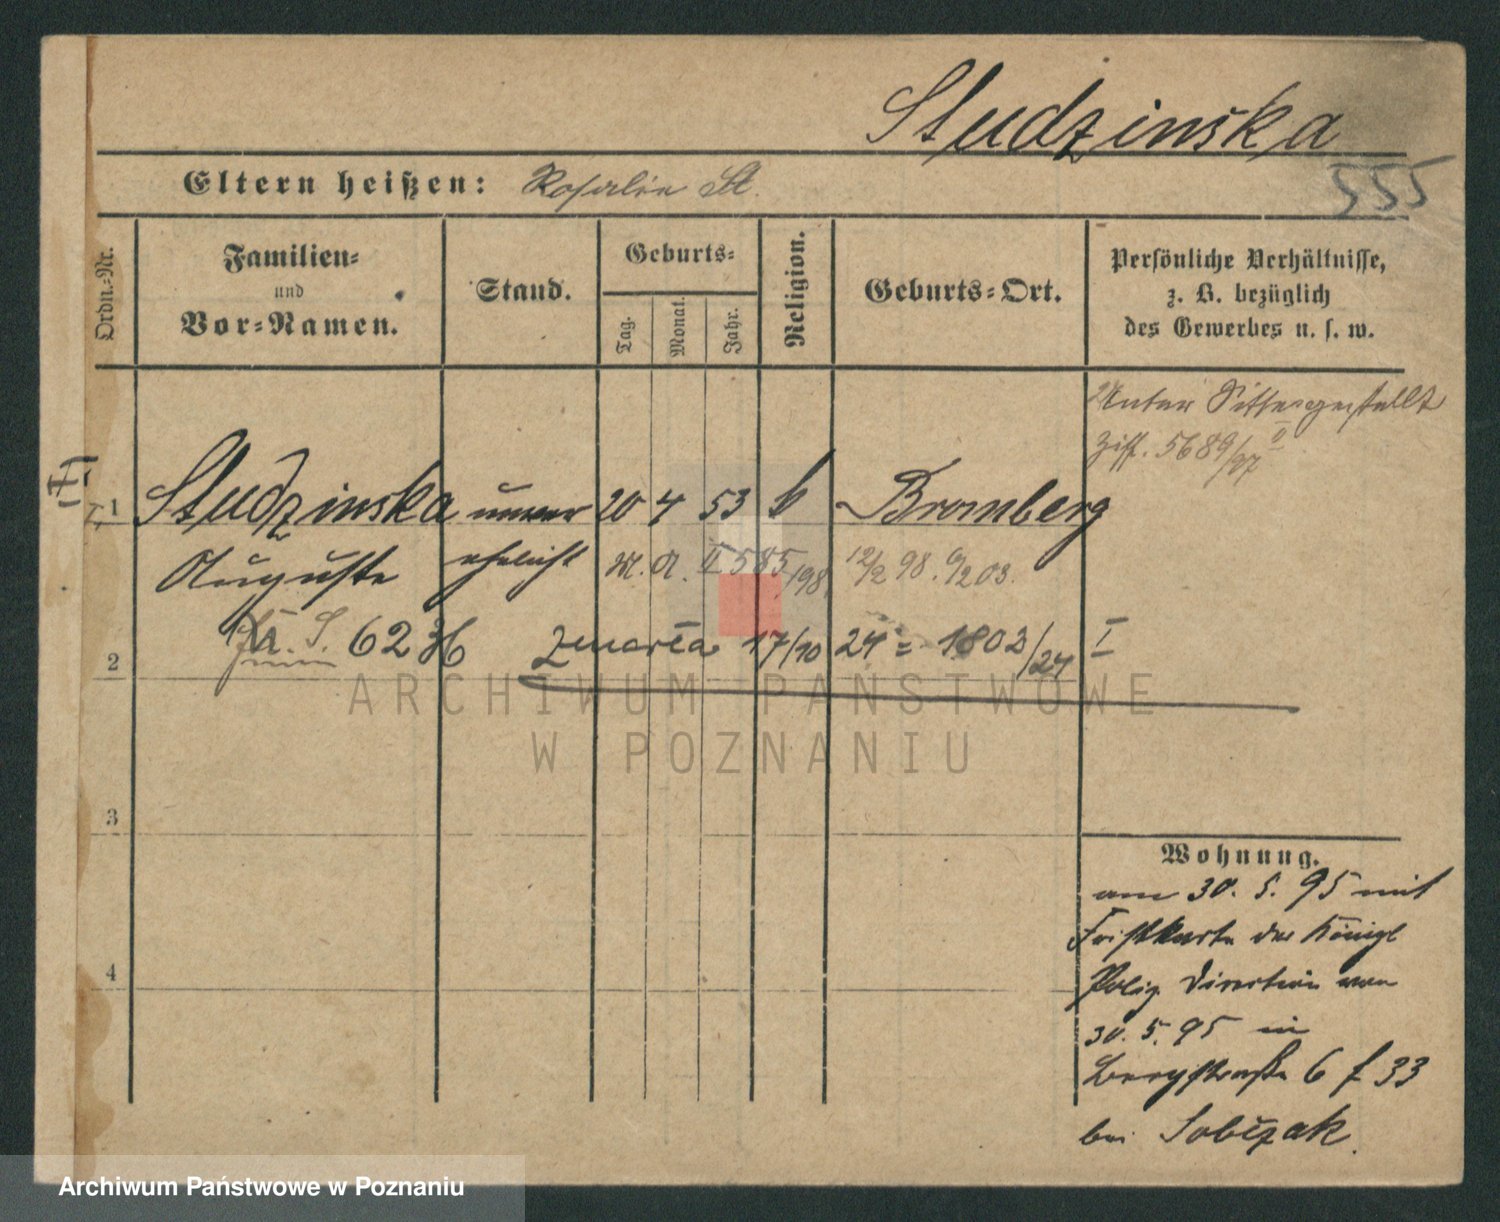 Studzinska
555
Eltern heißen: Rosalie St.
Ordn.-Nr.
Familien-
und
Vor-Namen.
Stand.
Geburts-
Tag.
Monat.
Jahr.
Religion.
Geburts-Ort.
Persönliche Verhältnisse,
z. B. bezüglich
des Gewerbes u. s. w.
Unter Sitte gestellt
5689/97
1 Studzinska unver 20 4 53 k Bromberg
Auguste ehelicht M. A. II 585/98 12/2 98. 9/2 03.
2 6236 zmarła 17/10 24 = 1803/24 I
ARCHIWUM PAŃSTWOWE
W POZNANIU
3
4
Wohnung.
am 30. 5. 95 mit
der Königl
Poliz. Direction von
30. 5. 95 in
Bergstraße 6 f 33
bei Sobczak.
Archiwum Państwowe w Poznaniu